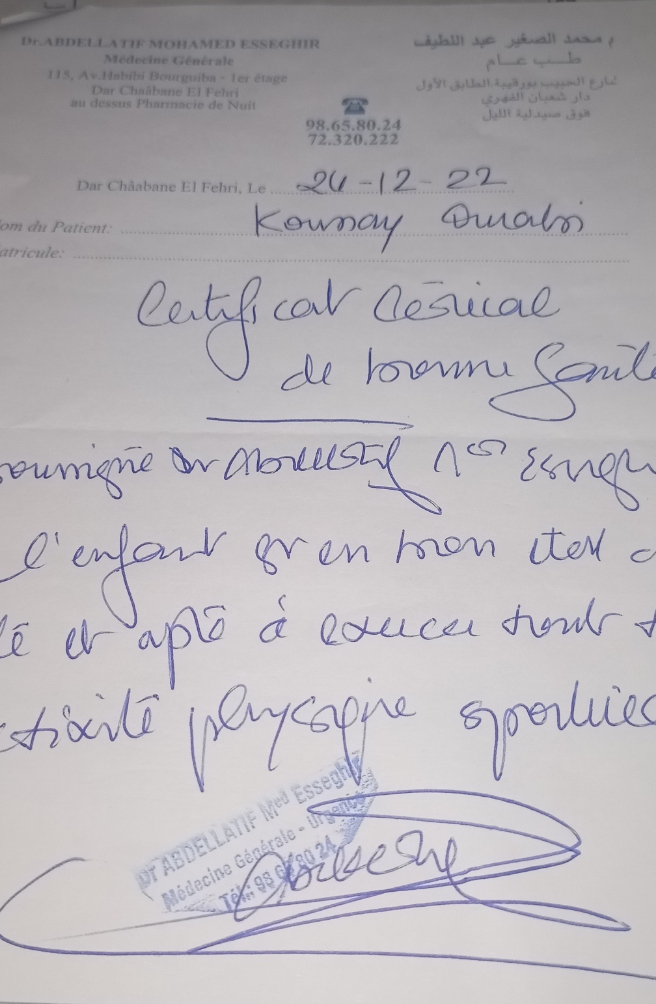 Dr. ABDELLATIF MOHAMED ESSEGHIR
Médecine Générale
115, Av. Habibi Bourguiba - 1er étage
Dar Chaâbane El Fehri
au dessus Pharmacie de Nuit
محمد الصغير عبد اللطيف
طب عام
شارع الحبيب بورقيبة الطابق الأول
دار شعبان الفهري
فوق صيدلية الليل
98.65.80.24
72.320.222
Dar Châabane El Fehri, Le 24-12-22
om du Patient:
atricule:
Certificat Médical
de bonne Santé
soussigné Dr
l'enfant est en bon état
té et apte à exercer toute
ctivité physique sportive
Dr ABDELLATIF Med Esseghir
Médecine Générale - Urgence
Tél.: 98 65 80 24